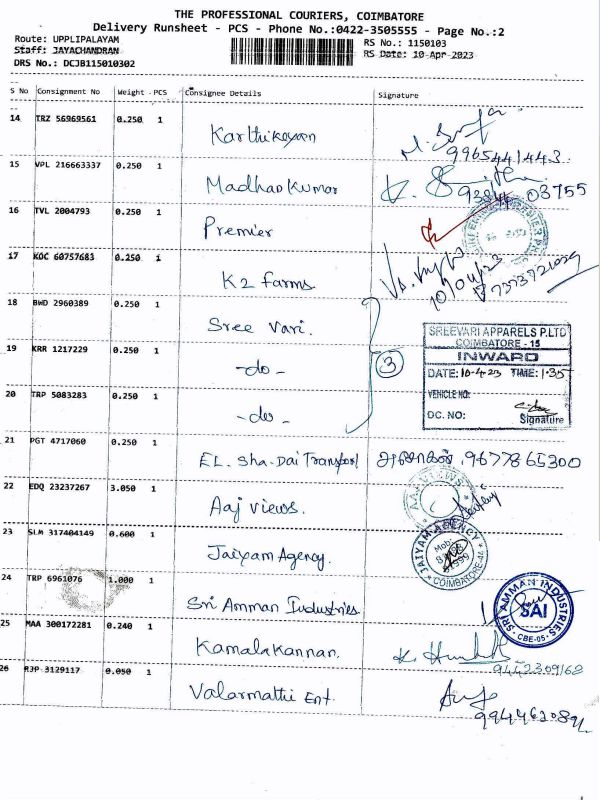 THE PROFESSIONAL COURIERS, COIMBATORE
Delivery Runsheet - PCS - Phone No.:0422-3505555 - Page No.:2
Route: UPPLIPALAYAM
Staff: JAYACHANDRAN
DRS No.: DCJB115010302
RS No.: 1150103
RS Date: 10-Apr-2023
S No Consignment No Weight PCS Consignee Details Signature
14 TRZ 56969561 0.250 1 Karthikeyan
9965441443
15 VPL 216663337 0.250 1 Madhan Kumar
03755
16 TVL 2004793 0.250 1 Premier
17 KOC 60757683 0.250 1 K2 farms
10/04/23
18 BWD 2960389 0.250 1 Sree Vari.
19 KRR 1217229 0.250 1 -do-
20 TRP 5083283 0.250 1 -do-
3
SREEVARI APPARELS P.LTD
COIMBATORE - 15
INWARD
DATE: 10-4-23 TIME: 1.35
VEHICLE NO:
DC. NO:
Signature
21 PGT 4717060 0.250 1 EL. Sha-Dai Transport அசோகன் .9677865300
22 EDQ 23237267 3.050 1 Aaj Views.
AAJ VIEWS
23 SLM 317404149 0.600 1 Jaiyam Agency.
JAIYAM AGENCY
Mob:
COIMBATORE
24 TRP 6961076 1.000 1 Sri Amman Industries
SRI AMMAN INDUSTRIES
SAI
CBE-05
25 MAA 300172281 0.240 1 Kamalakannan.
9442309168
26 RJP 3129117 0.050 1 Valarmathi Ent